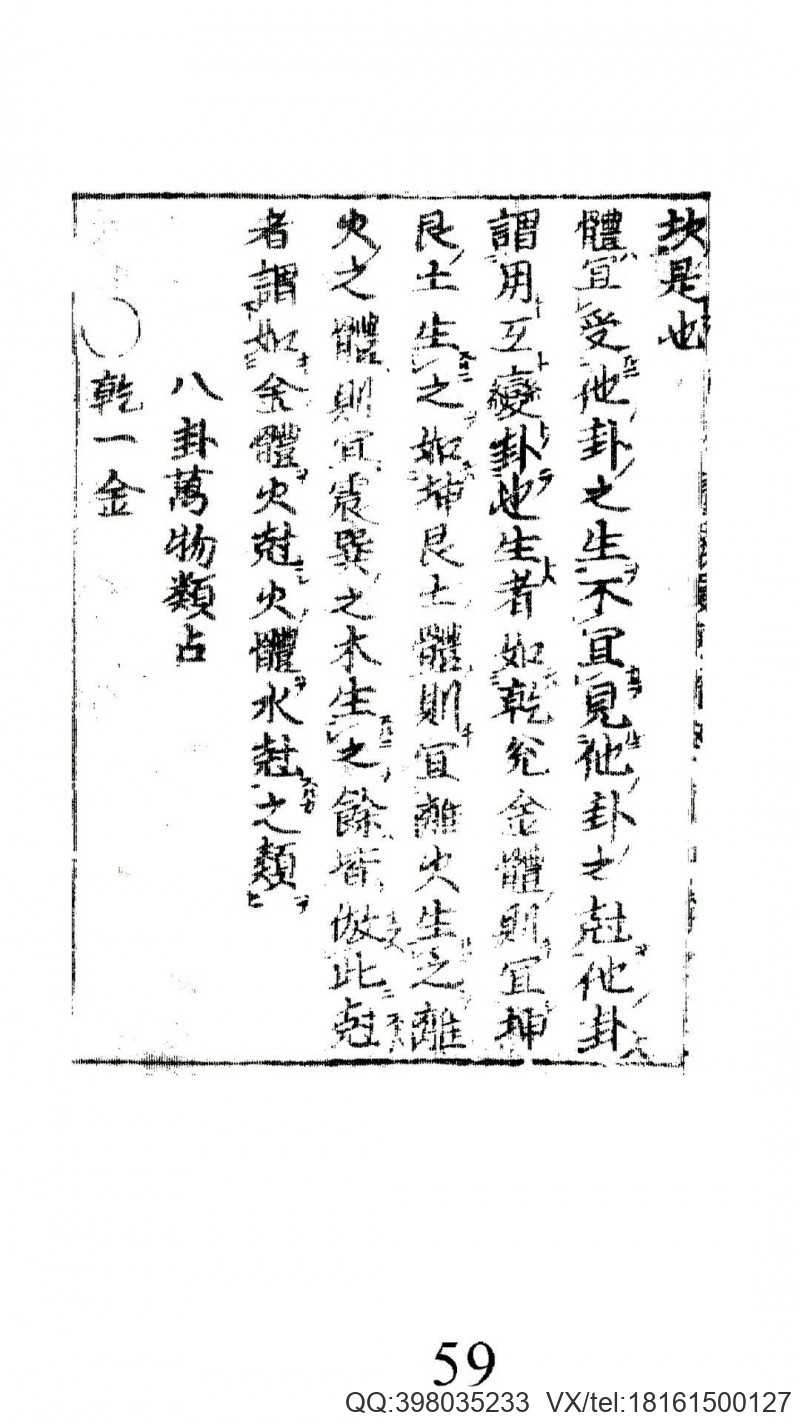 坎是也
體宜受他卦之生不宜見他卦之尅他卦
謂用互變卦也生者如乾兌金體則宜坤
艮土生之如坤艮土體則宜離火生之離
火之體則宜震巽之木生之餘皆倣此尅
者謂如金體火尅火體水尅之類
八卦萬物類占
乾一金
59
QQ:398035233 VX/tel:18161500127